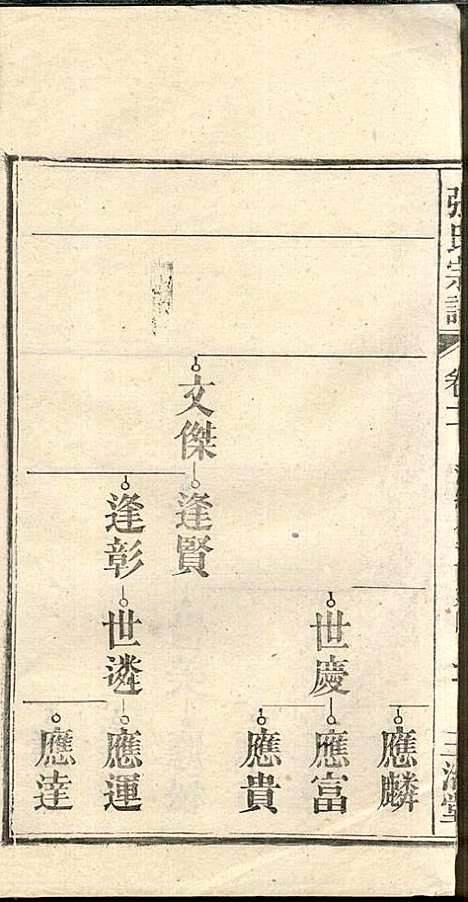 張氏宗譜
卷二
文傑
逢賢
逢彰
世慶
世遴
應麟
應富
應貴
應運
應達